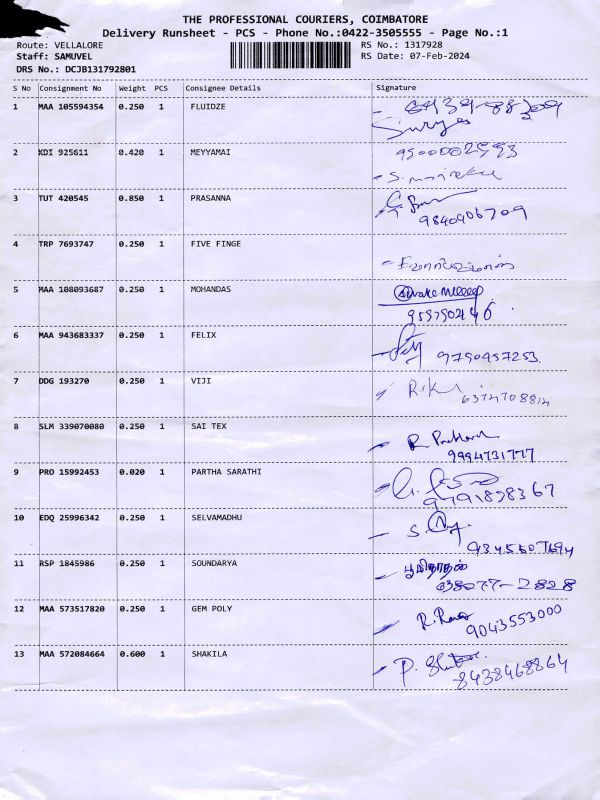 THE PROFESSIONAL COURIERS, COIMBATORE
Delivery Runsheet - PCS - Phone No.:0422-3505555 - Page No.:1
Route: VELLALORE RS No.: 1317928
Staff: SAMUVEL RS Date: 07-Feb-2024
DRS No.: DCJB131792801
S No Consignment No Weight PCS Consignee Details Signature
1 MAA 105594354 0.250 1 FLUIDZE
Surya
2 KDI 925611 0.420 1 MEYYAMAI
3 TUT 420545 0.850 1 PRASANNA
9840906709
4 TRP 7693747 0.250 1 FIVE FINGE
5 MAA 108093687 0.250 1 MOHANDAS
6 MAA 943683337 0.250 1 FELIX
9790957253
7 DDG 193270 0.250 1 VIJI
8 SLM 339070080 0.250 1 SAI TEX
9994731777
9 PRO 15992453 0.020 1 PARTHA SARATHI
10 EDQ 25996342 0.250 1 SELVAMADHU
11 RSP 1845986 0.250 1 SOUNDARYA
12 MAA 573517820 0.250 1 GEM POLY
9043553000
13 MAA 572084664 0.600 1 SHAKILA
8438468864